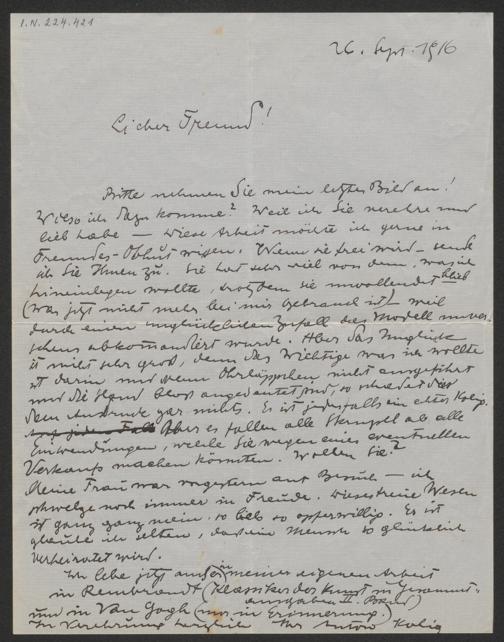 I.N. 224.421
26. Sept. 1916
Lieber Freund!
Bitte nehmen Sie mein letztes Bild an!
Wieso ich dazu komme? Weil ich Sie verehre und
lieb habe — diese Arbeit möchte ich gerne in
Freundes-Obhut wissen. Wenn sie frei wird – sende
ich Sie Ihnen zu. Sie hat sehr viel von dem, was ich
hineinlegen wollte, trotzdem sie unvollendet blieb
(was jetzt nicht mehr bei mir Gebrauch ist) weil
durch einen unglücklichen Zufall das Modell unver-
sehens abkommandiert wurde. Aber das Unglück
ist nicht sehr groß, denn das Wichtige was ich wollte
ist darin und wenn Ohrläppchen nicht ausgeführt
und die Hand bloss angedeutet sind, so schadet dies
dem Ausdruck gar nichts. Es ist jedenfalls ein echter Kolig.
Auf jeden Fall Aber es fallen alle Skrupel als alle
Einwendungen, welche Sie wegen eines eventuellen
Verkaufs machen könnten. Wollen Sie?
Meine Frau war vorgestern auf Besuch – ich
schwelge noch immer in Freude. Dieses freie Wesen
ist ganz ganz mein. so lieb so opferwillig. Es ist
glaube ich selten, dass ein Mensch so glücklich
verheiratet wird.
Ich lebe jetzt außer in meiner eigenen Arbeit
in Rembrandt (Klassiker der Kunst in Gesammt-
ausgaben II. Band)
und in Van Gogh (nur in Erinnerung)
In Verehrung herzlich Ihr Anton Kolig